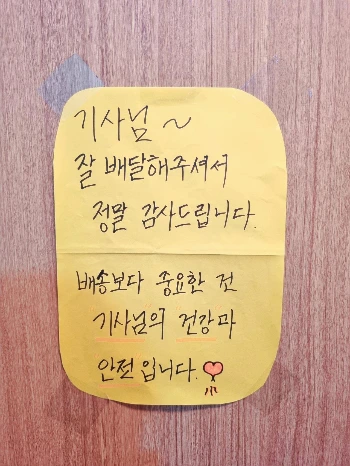 기사님 ~
잘 배달해주셔서
정말 감사드립니다.
배송보다 중요한 건
기사님의 건강과
안전입니다.